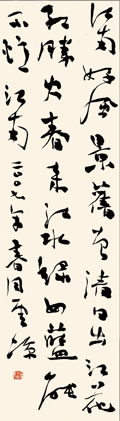 江南好風景舊曾諳日出江花
紅勝火春來江水綠如藍能
不憶江南二〇〇九年春月